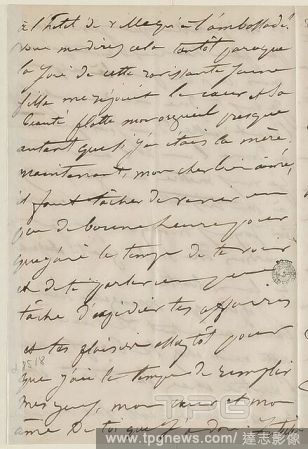 à l'hotel de
vous me direz cela tantôt parce que
la joie de cette ravissante jeune
fille me réjouit le cœur et sa
beauté flatte mon orgueil presque
autant que si j'en étais la mère.
maintenant, mon cher bien aimé,
il faut tâcher de venir un
peu de bonne heure pour
que j'aie le temps de te voir
et de te parler un peu
tâche d'expédier tes affaires
et tes plaisirs assez tôt pour
que j'aie le temps de remplir
mes yeux, mon cœur et mon
âme de toi que
TPG
www.tpgnews.com / 達志影像